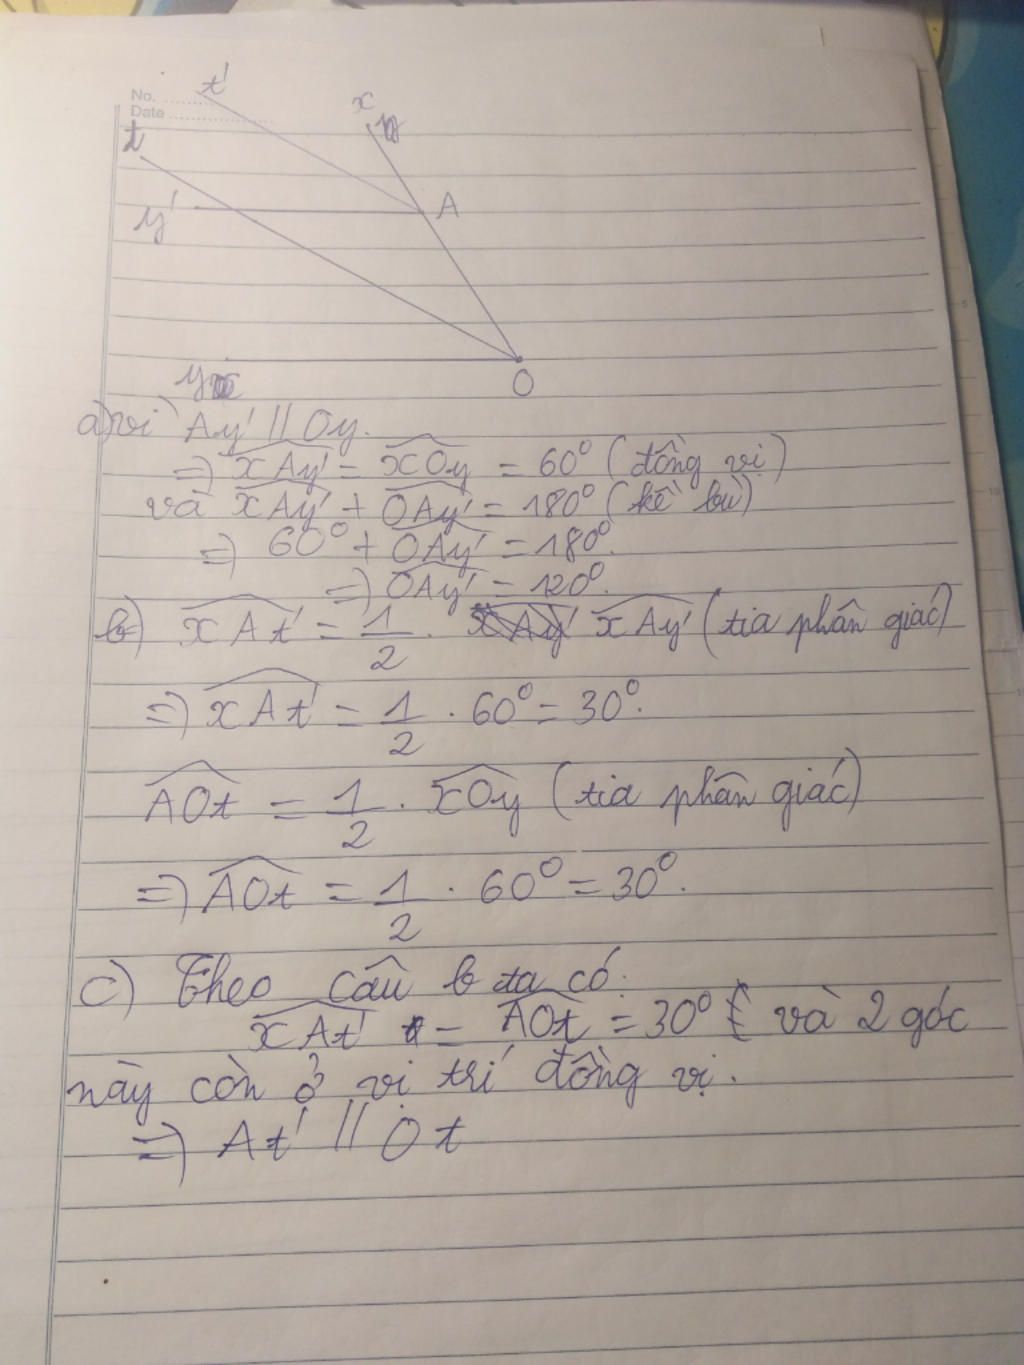 No. ............
Date ........................
t'
x
t
y'
A
y
O
a) vì Ay' // Oy.
=> xAy' = xOy = 60° (đồng vị)
và xAy' + OAy' = 180° (kề bù)
=> 60° + OAy' = 180°.
=> OAy' = 120°.
b) xAt' = 1/2 . xAy' (tia phân giác)
=> xAt' = 1/2 . 60° = 30°.
AOt = 1/2 . xOy (tia phân giác)
=> AOt = 1/2 . 60° = 30°.
c) Theo câu b ta có:
xAt' = AOt = 30° và 2 góc
này còn ở vị trí đồng vị.
=> At' // Ot